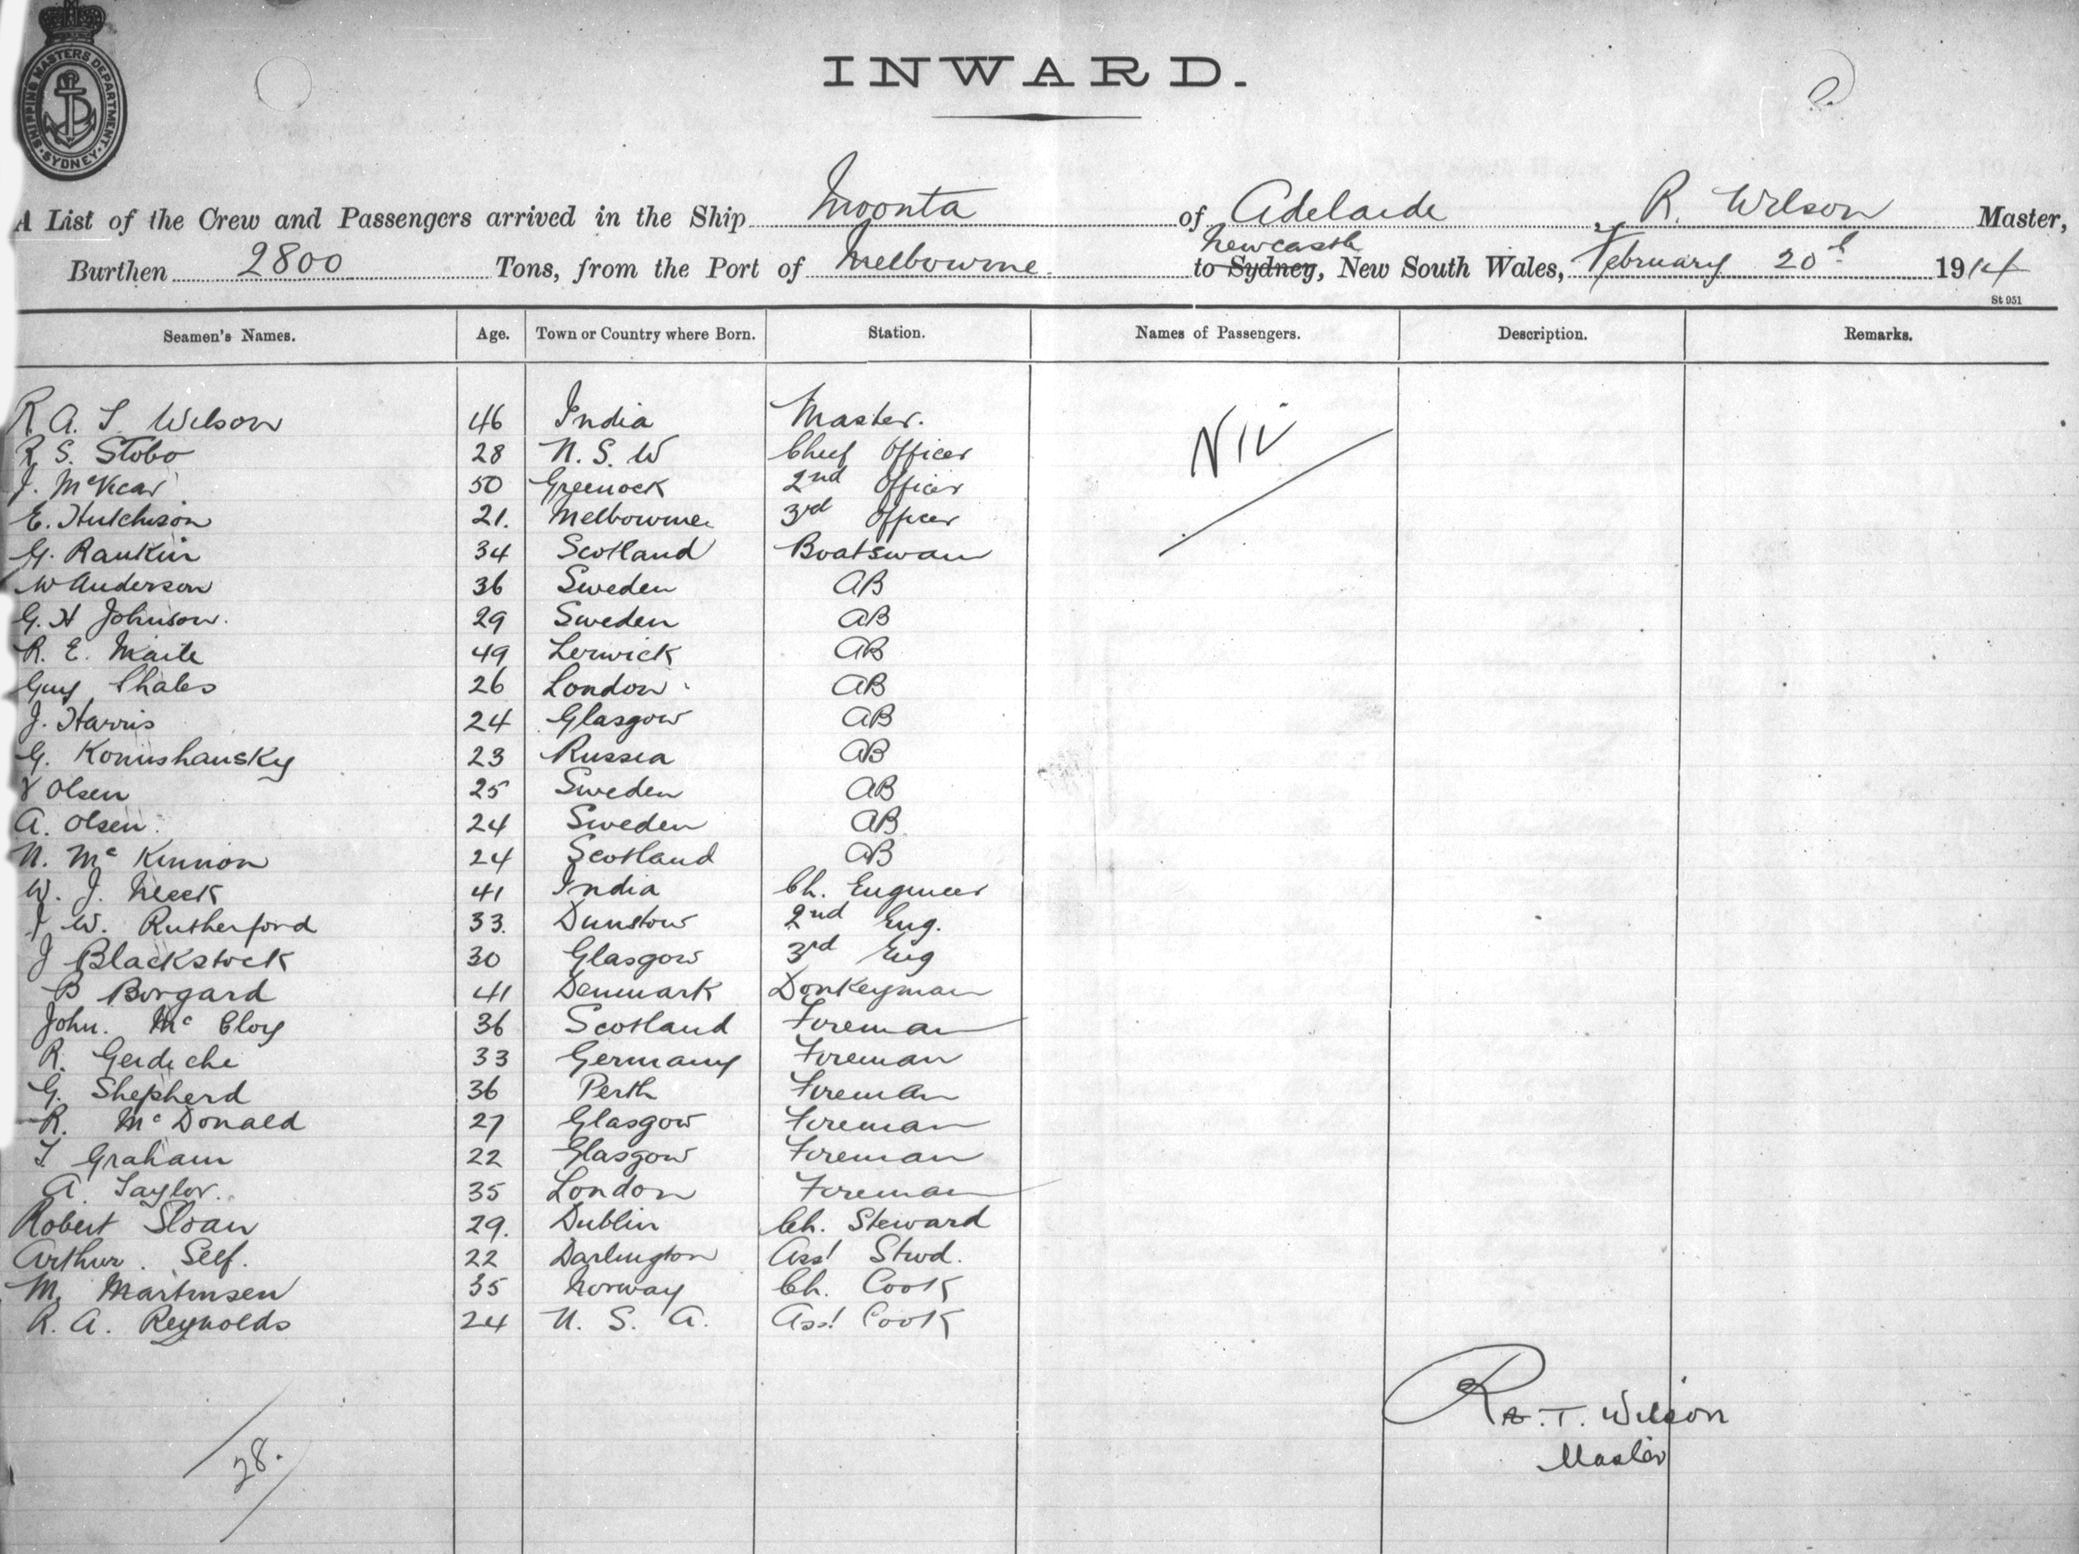 SHIPPING MASTERS DEPARTMENT · SYDNEY ·
INWARD.
A List of the Crew and Passengers arrived in the Ship Moonta of Adelaide, R. Wilson Master,
Burthen 2800 Tons, from the Port of Melbourne. to Sydney, Newcastle New South Wales, February 20th 1914
St 951
Seamen's Names. Age. Town or Country where Born. Station. Names of Passengers. Description. Remarks.
R. A. T. Wilson 46 India Master. Nil
R S. Stobo 28 N. S. W Chief Officer
J. McVicar 50 Greenock 2nd Officer
E. Hutchison 21. Melbourne 3rd Officer
G. Rankin 34 Scotland Boatswain
W Anderson 36 Sweden AB
G. H Johnson. 29 Sweden AB
R. E. 49 Lerwick AB
Guy 26 London AB
J. Harris 24 Glasgow AB
G. Konishansky 23 Russia AB
Olsen 25 Sweden AB
A. Olsen 24 Sweden AB
N. Mc Kinnon 24 Scotland AB
W. J. 41 India Ch. Engineer
J W. Rutherford 33. 2nd Eng.
J Blackstock 30 Glasgow 3rd Eng
B Borgard 41 Denmark Donkeyman
John. Mc Cloy 36 Scotland Fireman
R. 33 Germany Fireman
G. Shepherd 36 Perth Fireman
R. Mc Donald 27 Glasgow Fireman
T Graham 22 Glasgow Fireman
A. Taylor. 35 London Fireman
Robert Sloan 29. Dublin Ch. Steward
Arthur. Self. 22 Darlington Asst Stwd.
M. Martinsen 35 Norway Ch. Cook
R. A. Reynolds 24 U. S. A. Asst Cook
R A. T. Wilson
Master
28.